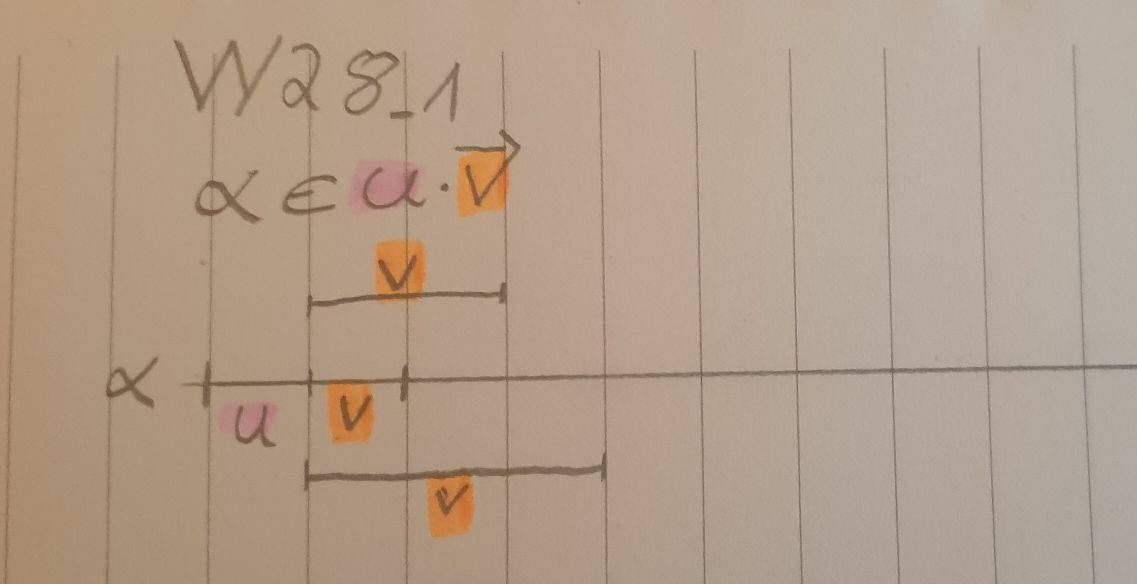 W28_1
α ∈ u · v⃗
v
α
u v
v